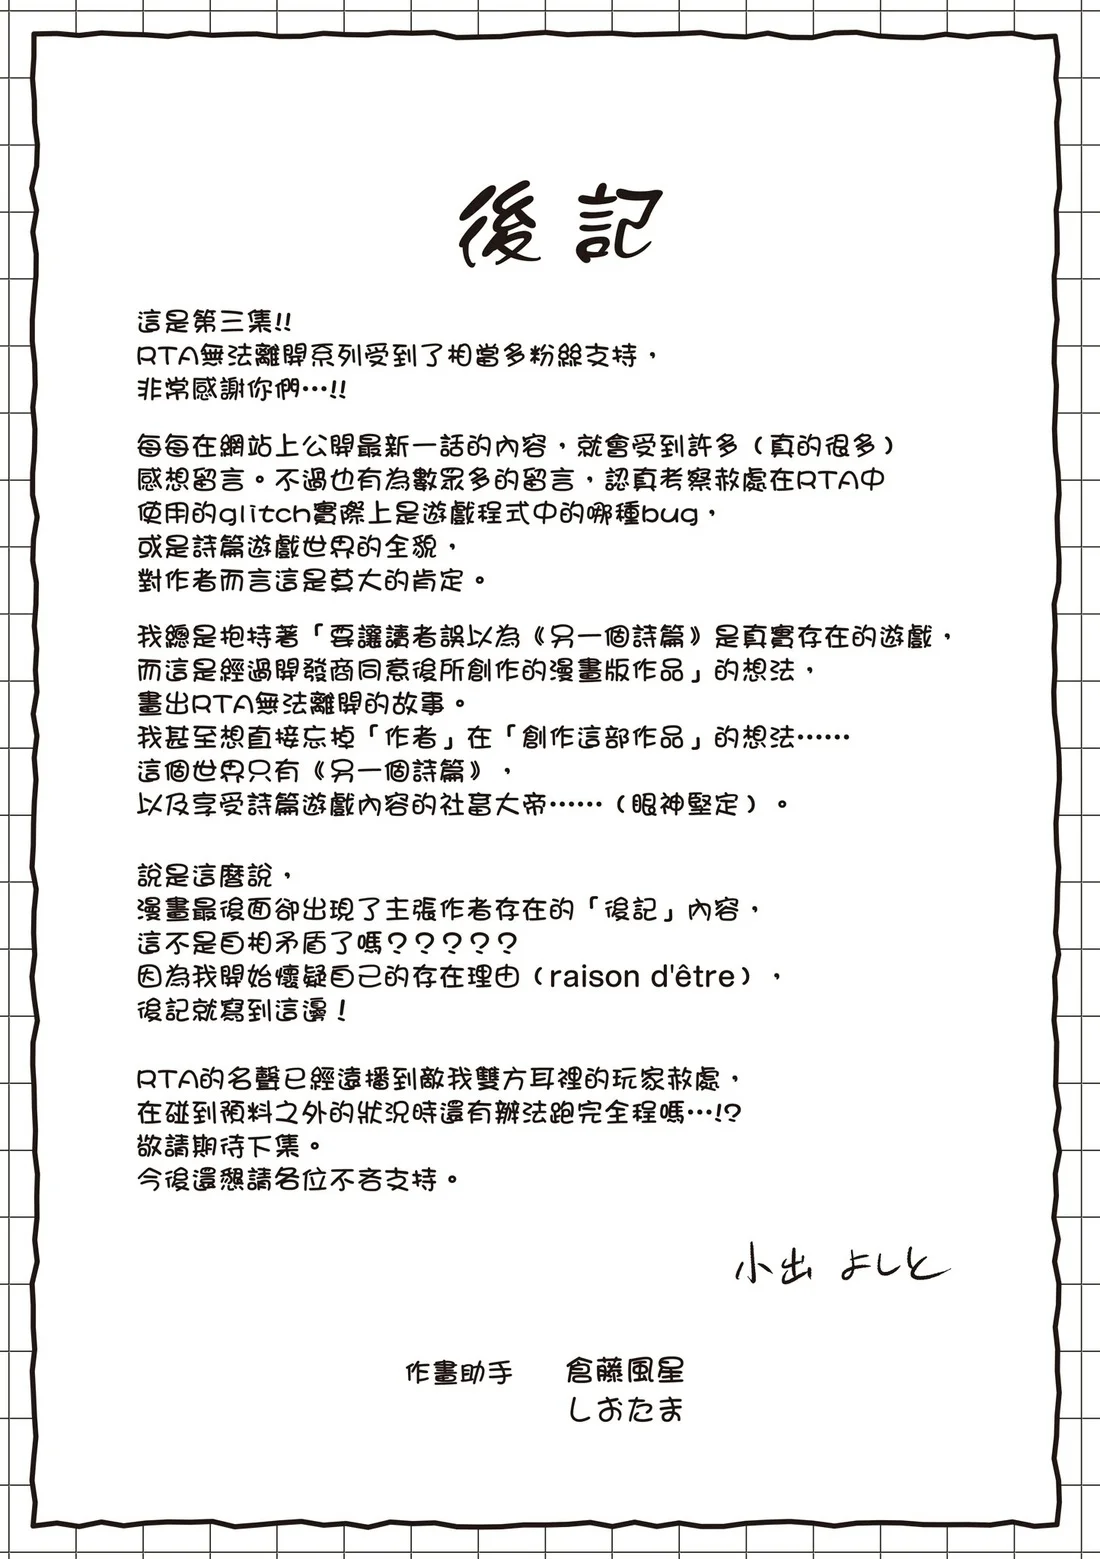 後記
這是第三集!!
RTA無法離開系列受到了相當多粉絲支持，
非常感謝你們…!!
每每在網站上公開最新一話的內容，就會受到許多（真的很多）
感想留言。不過也有為數眾多的留言，認真考察赦處在RTA中
使用的glitch實際上是遊戲程式中的哪種bug，
或是詩篇遊戲世界的全貌，
對作者而言這是莫大的肯定。
我總是抱持著「要讓讀者誤以為《另一個詩篇》是真實存在的遊戲，
而這是經過開發商同意後所創作的漫畫版作品」的想法，
畫出RTA無法離開的故事。
我甚至想直接忘掉「作者」在「創作這部作品」的想法……
這個世界只有《另一個詩篇》，
以及享受詩篇遊戲內容的社畜大帝……（眼神堅定）。
說是這麼說，
漫畫最後面卻出現了主張作者存在的「後記」內容，
這不是自相矛盾了嗎？？？？？
因為我開始懷疑自己的存在理由（raison d'être），
後記就寫到這邊！
RTA的名聲已經遠播到敵我雙方耳裡的玩家赦處，
在碰到預料之外的狀況時還有辦法跑完全程嗎…!?
敬請期待下集。
今後還懇請各位不吝支持。
小出 よしと
作畫助手 倉藤風星
しおたま